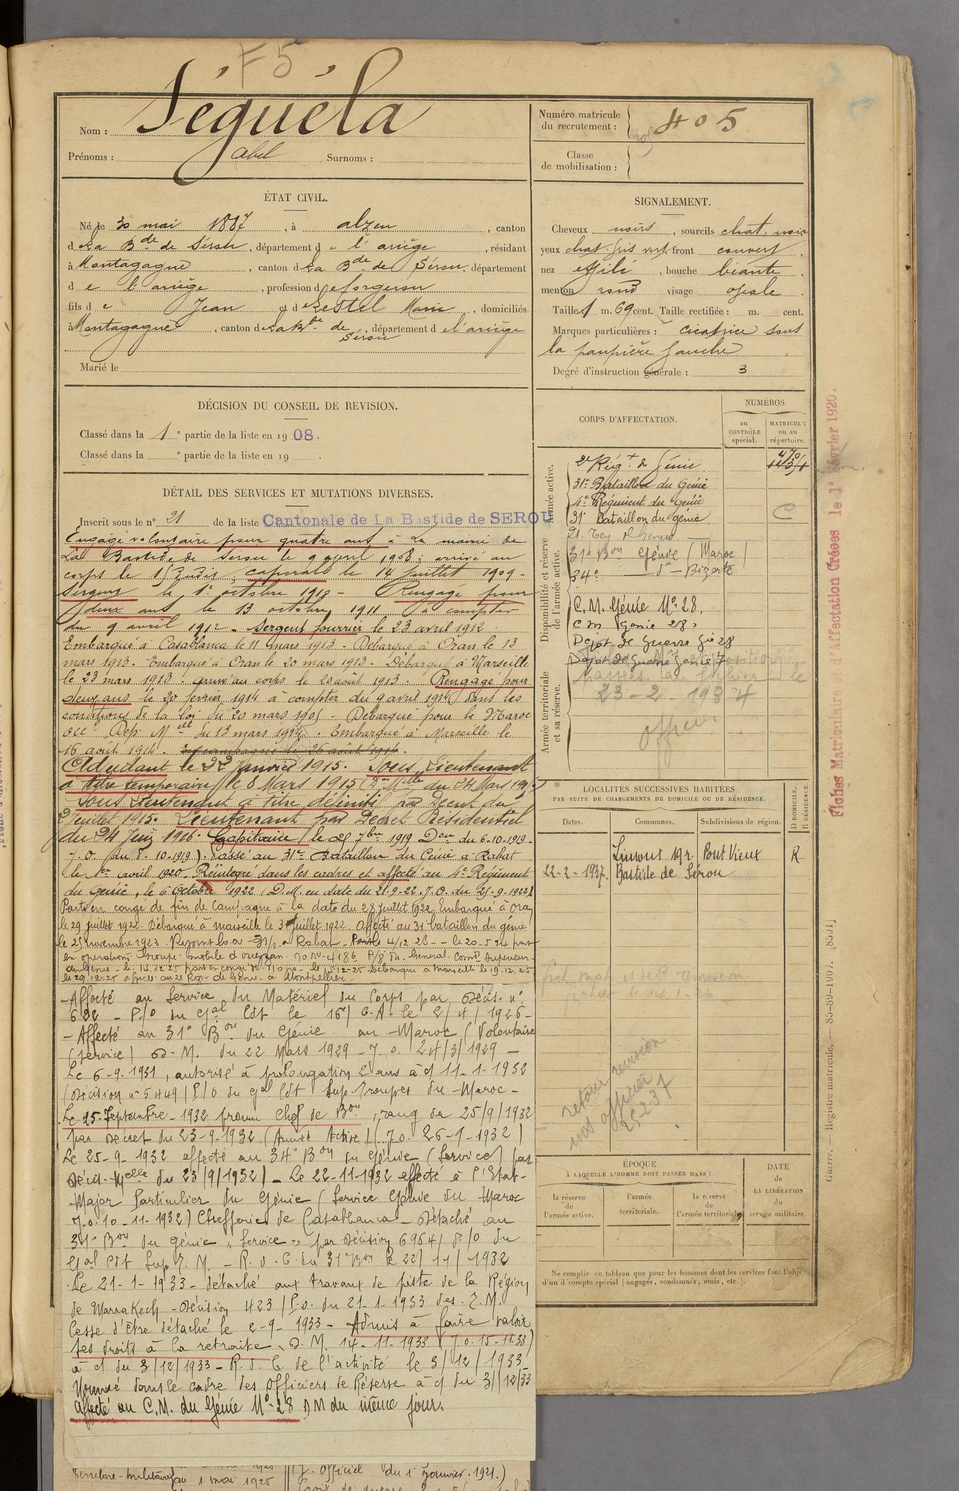 F5
Nom : Séguéla
Prénoms : Abel Surnoms :
Numéro matricule du recrutement : 405
Classe de mobilisation :
ÉTAT CIVIL.
Né le 30 mai 1887, à Alzen, canton
d La Bde de Sérou, département d e l'ariège, résidant
à Montagagne, canton d La Bde de Sérou, département
d e l'ariège, profession de forgeron
fils d e Jean et d e Restel Marie, domiciliés
à Montagagne, canton de La Bde de Sérou, département de l'ariège
Marié le
SIGNALEMENT.
Cheveux noirs, sourcils chat. noir
yeux chat. gris vert, front couvert,
nez effilé, bouche béante,
menton rond visage ovale.
Taille 1 m. 69 cent. Taille rectifiée : m. cent.
Marques particulières : cicatrice sous
la paupière gauche
Degré d'instruction générale : 3
DÉCISION DU CONSEIL DE REVISION.
Classé dans la 1e partie de la liste en 1908.
Classé dans la e partie de la liste en 19
DÉTAIL DES SERVICES ET MUTATIONS DIVERSES.
Inscrit sous le n° 21 de la liste Cantonale de La Bastide de SEROU
Engagé volontaire pour quatre ans à la mairie de
La Bastide de Sérou le 9 avril 1908; arrivé au
corps le dit jour, caporal le 14 juillet 1909 -
Sergent le 1er octobre 1910 - Rengagé pour
deux ans le 13 octobre 1911 à compter
du 9 avril 1912 - Sergent fourrier le 23 avril 1912
Embarqué à Casablanca le 11 mars 1913 - Débarqué à Oran le 13
mars 1913. Embarqué à Oran le 20 mars 1913 - Débarqué à Marseille
le 23 mars 1913. Arrivé au corps le 20 avril 1913. Rengagé pour
deux ans le 20 février 1914 à compter du 9 avril 1914 dans les
conditions de la loi du 20 mars 1905 - Débarqué pour le Maroc
occ. Dép. Mlle du 13 mars 1914. Embarqué à Marseille le
16 avril 1914.
Adjudant le 22 Janvier 1915. Sous Lieutenant
à titre temporaire le 8 Mars 1915 (Dn Mlle du 24 Mars 1915)
Sous Lieutenant à titre définitif par Décret du
Juillet 1915. Lieutenant par Décret Présidentiel
du 24 Juin 1916. Capitaine (le 7bre 1919 Don du 6.10.1919
J.O. du 8.10.1919). Passé au 31e Bataillon du Génie à Rabat
le 1er avril 1920. Réintégré dans les cadres et affecté au 4e Régiment
du Génie, le 6 Octobre 1922 (D.M. en date du 21.9.22. J.O. du 25.9.1922)
Parti en congé de fin de Campagne à la date du 28 Juillet 1922. Embarqué à Oran
le 29 juillet 1922. Débarqué à Marseille le 31 juillet 1922. Affecté au 31 bataillon du génie
le 25 novembre 1923.
- Affecté au Service du Matériel du Corps par Décis. n°
632 - P/o du Gal Cdt le 16e C.A. le 2/4/1926 -
- Affecté au 31e Bon du Génie au Maroc (Volontaire
(service) D.M. du 22 Mars 1929 - J.O. 24/3/1929 -
Le 6-9-1931, autorisé à prolongation 2 ans à c/ 11-1-1932
(Décision n° 5449/P/O du Gal Cdt Sup. Troupes du Maroc -
Le 25 Septembre - 1932 promu Chef de Bon, rang du 25/9/1932
par Décret du 23-9-1932 (Armée Active) (J.O. 26-9-1932)
Le 25-9-1932 affecté au 34e Bon du Génie (Service) par
Décis. Mlle du 23/9/1932) - Le 22-11-1932 affecté à l'Etat-
Major Particulier du Génie (Service Génie du Maroc
J.O. 10-11-1932) Chefferie de Casablanca - Détaché au
31e Bon du Génie "Service" par Décision 6964/P/O du
Gal Cdt Sup. T.M. - R.d.C. du 31e Bon le 22/11/1932
Le 21-1-1933 - détaché aux travaux de piste de la Région
de Marrakech - Décision 423/P.O. du 21-1-1933 des T.M.
Cesse d'être détaché le 2-9-1933 - Admis à faire valoir
ses droits à la retraite - D.M. 14-11-1933 (J.O. 15-11-33)
à c/ du 3/12/1933 - R.d.C. de l'activité le 3/12/1933
Nommé dans le cadre des Officiers de Réserve à c/ du 3/12/33
affecté au C.M. du Génie N° 28 DM du même jour.
CORPS D'AFFECTATION.
NUMÉROS
AU CONTRÔLE spécial.
MATRICULE ou au répertoire.
Armée active.
Disponibilité et réserve de l'armée active.
Armée territoriale et sa réserve.
2e Régt de Génie
31e Bataillon du Génie
4e Régiment du Génie
31 Bataillon du génie C
31e Bon Génie (Maroc)
34e - do - Bizerte
C.M. Génie N° 28.
C m Génie 28
Dépôt de Guerre Gie 28
Dépôt de Guerre Génie 7
23-2 1937
officier
LOCALITÉS SUCCESSIVES HABITÉES
PAR SUITE DE CHANGEMENTS DE DOMICILE OU DE RÉSIDENCE.
Dates. Communes. Subdivisions de région. D DOMICILE. R RÉSIDENCE.
Pont Vieux R
22-2-1937. Bastide de Sérou
retour
officier
25 2 37
ÉPOQUE
À LAQUELLE L'HOMME DOIT PASSER DANS :
la réserve de l'armée active.
l'armée territoriale.
la réserve de l'armée territoriale.
DATE de LA LIBÉRATION du service militaire.
Ne remplir ce tableau que pour les hommes dont les services font l'objet
d'un compte spécial (engagés, condamnés, omis, etc.).
Fiches Matricules d'Affectation Créées le 1er Février 1920.
Guerre. - Registre matricule. - 85-89-1907. [8501]